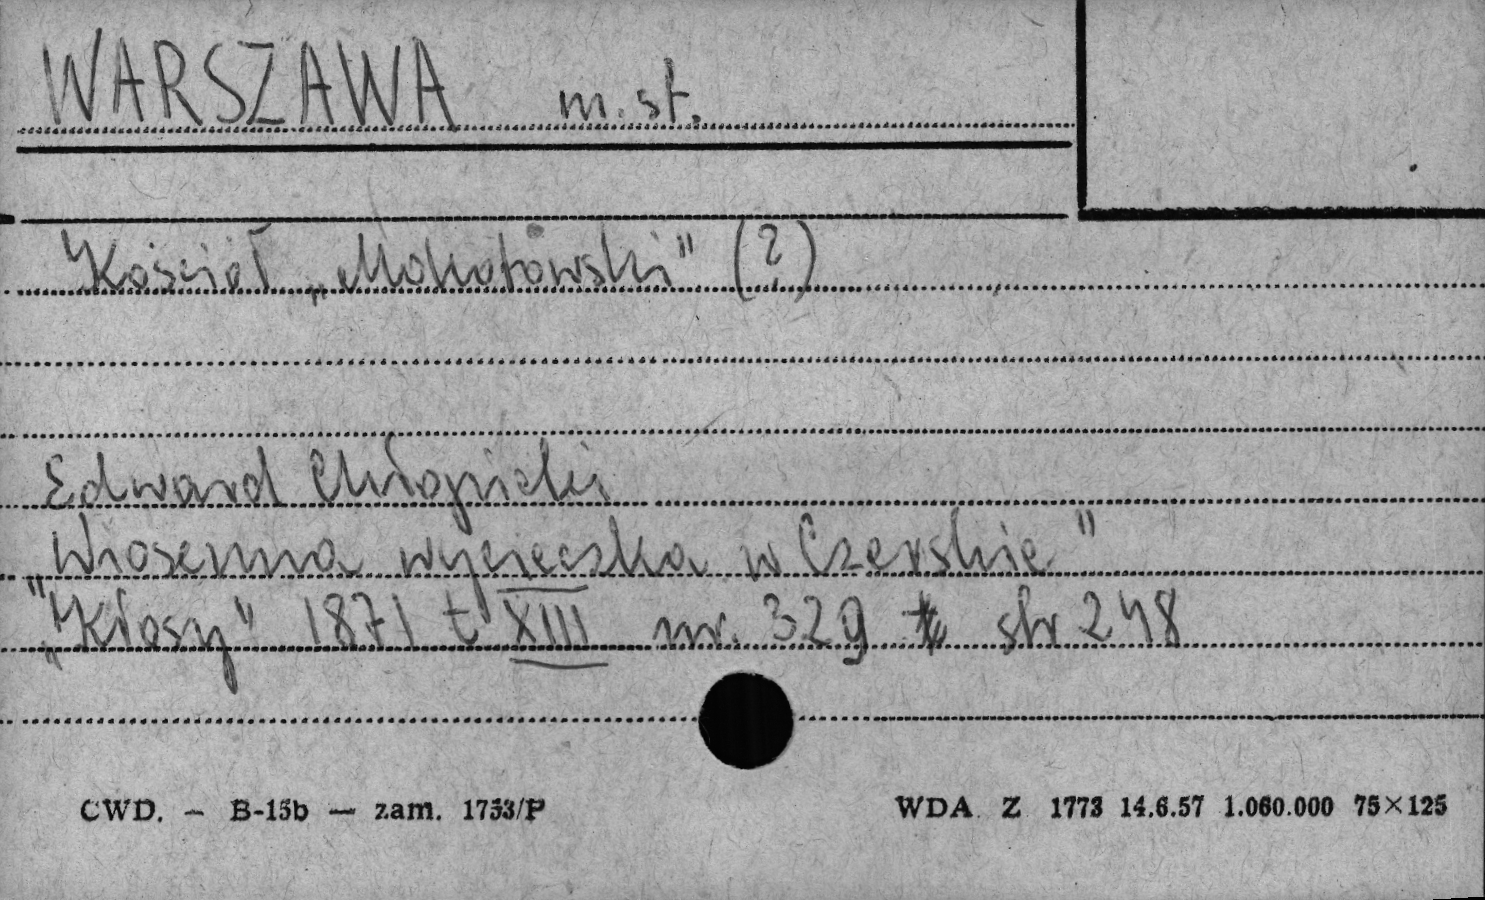 WARSZAWA m. st.
Kościół „Mokotowski" (?)
Edward Chłopicki
"Wiosenna wycieczka w Czerskie"
„Kłosy" 1871 t XIII nr. 329 str 248
CWD. — B-15b — zam. 1753/P
WDA Z 1773 14.6.57 1.060.000 75×125